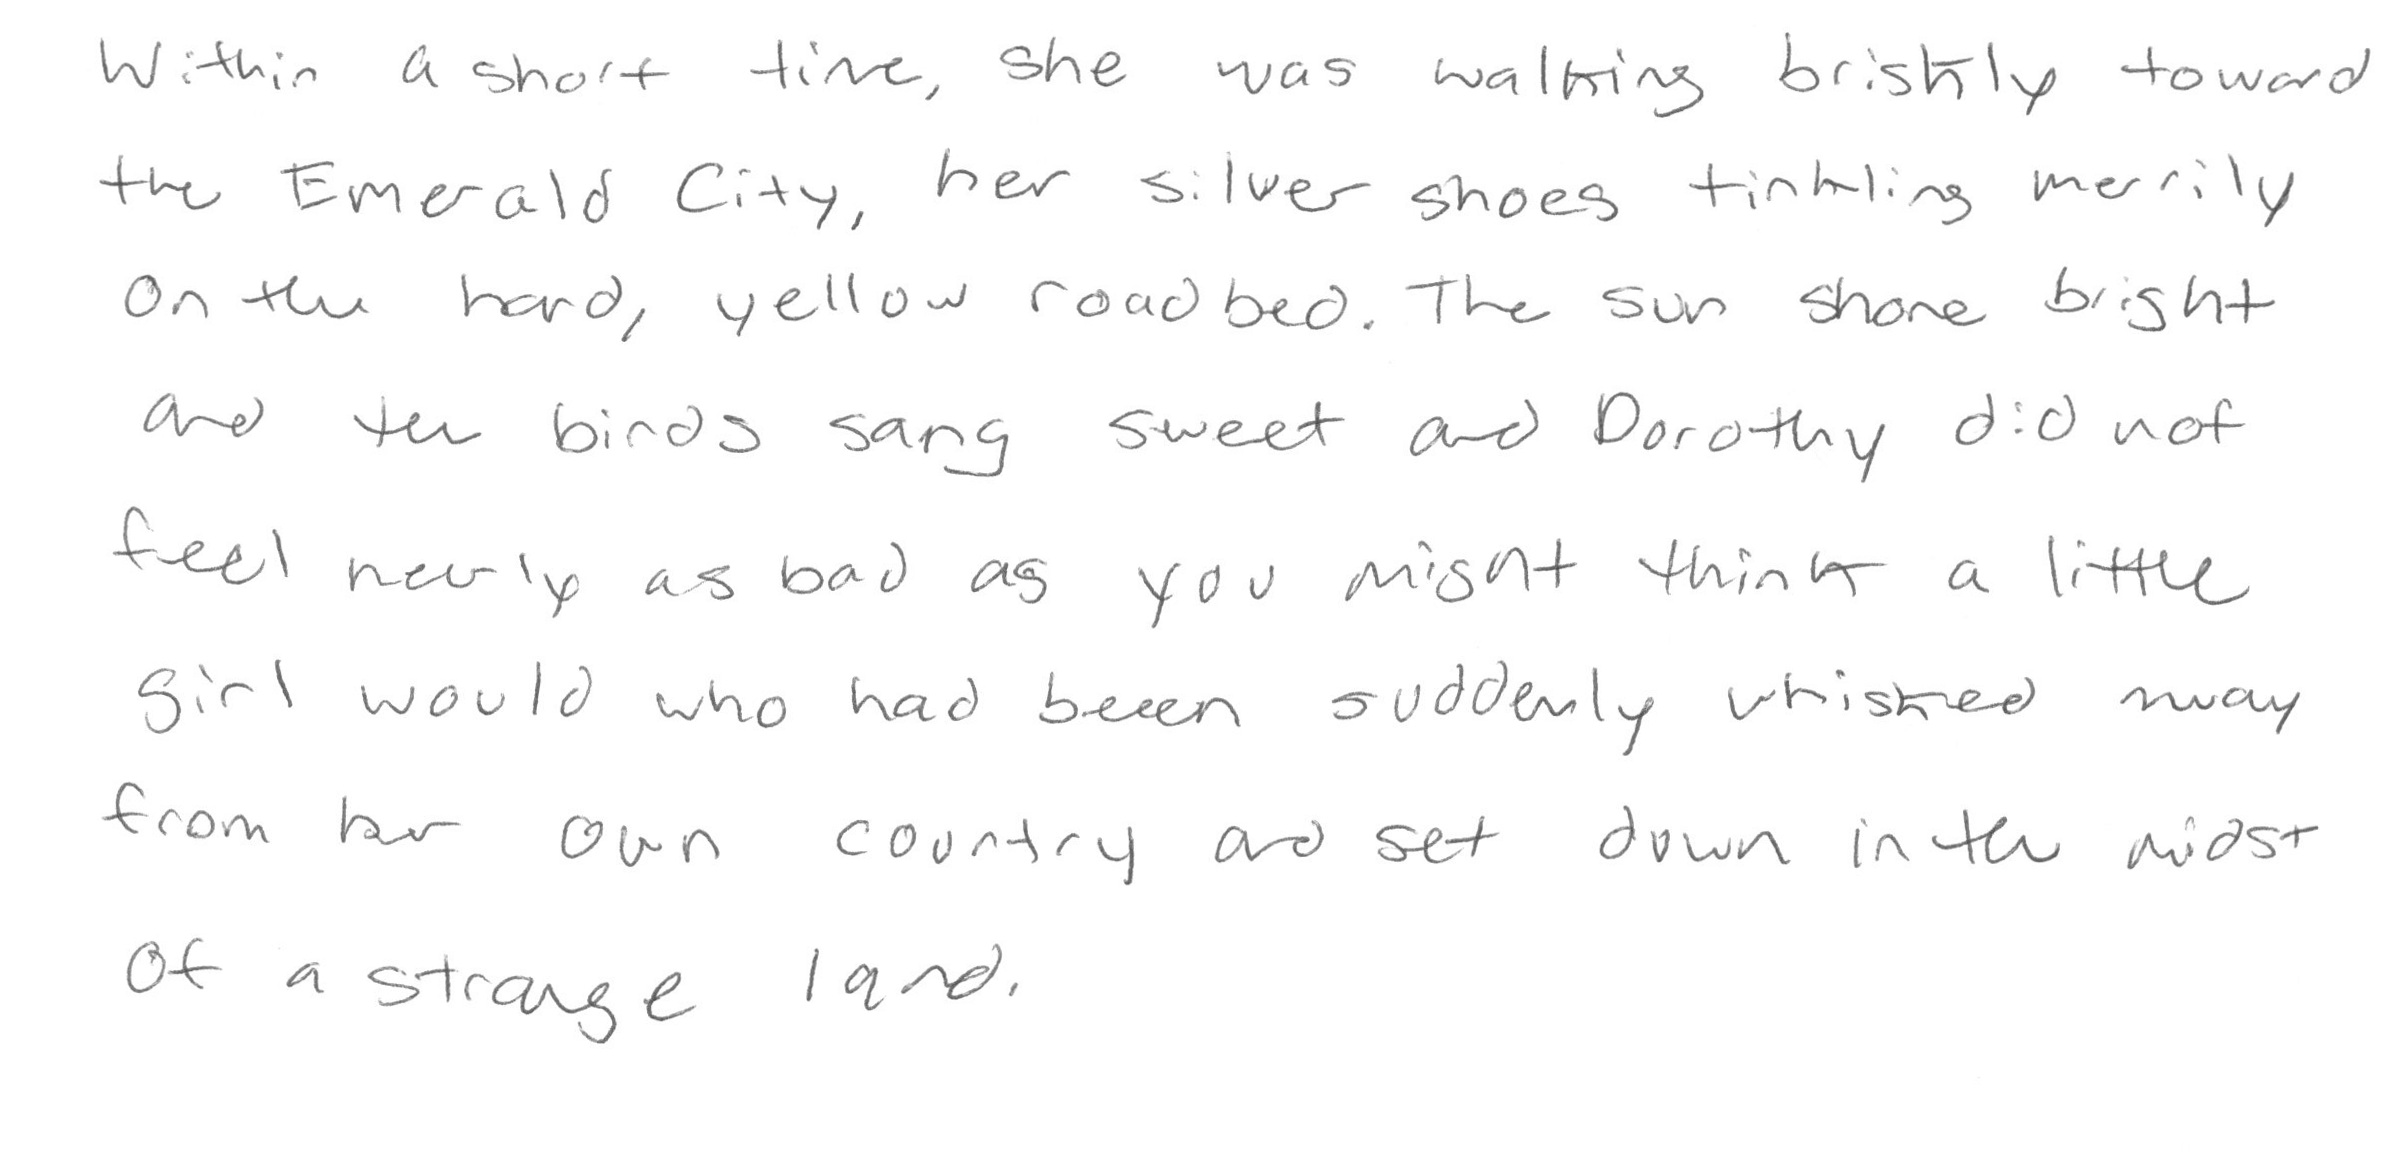 Within a short time, she was walking briskly toward
the Emerald City, her silver shoes tinkling merrily
on the hard, yellow roadbed. The sun shone bright
and the birds sang sweet and Dorothy did not
feel nearly as bad as you might think a little
girl would who had been suddenly whisked away
from her own country and set down in the midst
of a strange land.